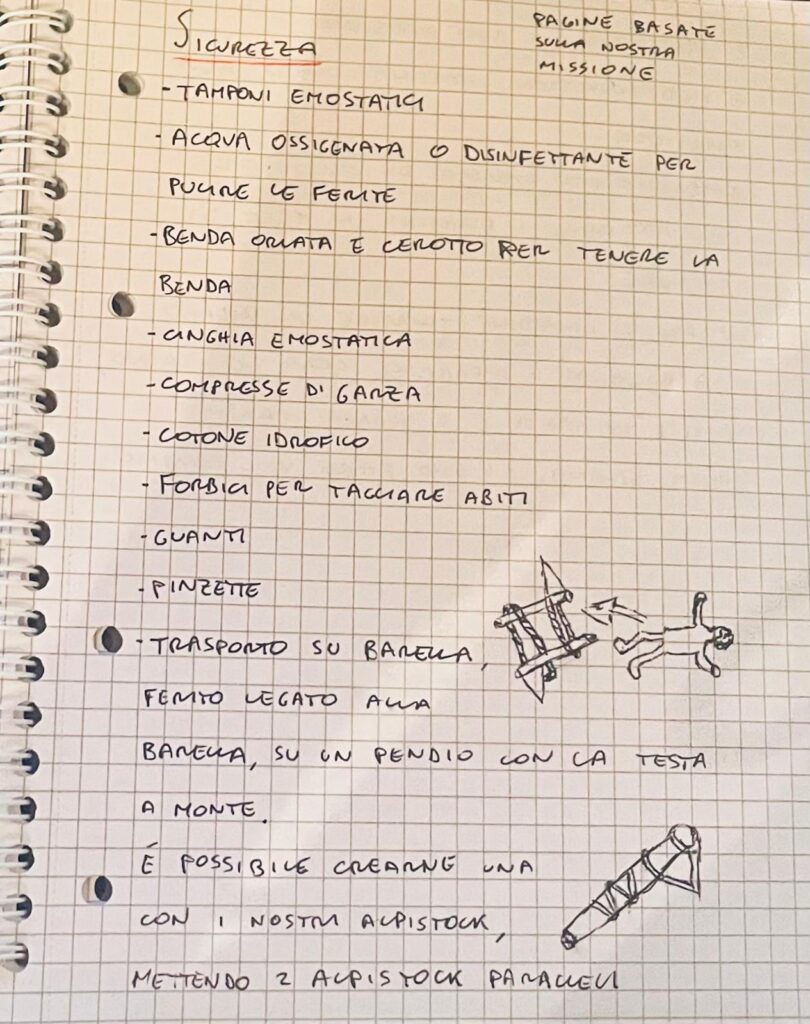 SICUREZZA
PAGINE BASATE
SULLA NOSTRA
MISSIONE
- TAMPONI EMOSTATICI
- ACQUA OSSIGENATA O DISINFETTANTE PER
PULIRE LE FERITE
- BENDA ORLATA E CEROTTO PER TENERE LA
BENDA
- CINGHIA EMOSTATICA
- COMPRESSE DI GARZA
- COTONE IDROFICO
- FORBICI PER TAGLIARE ABITI
- GUANTI
- PINZETTE
- TRASPORTO SU BARELLA,
FERITO LEGATO ALLA
BARELLA, SU UN PENDIO CON LA TESTA
A MONTE.
É POSSIBILE CREARNE UNA
CON I NOSTRI ALPISTOCK,
METTENDO 2 ALPISTOCK PARALLELI